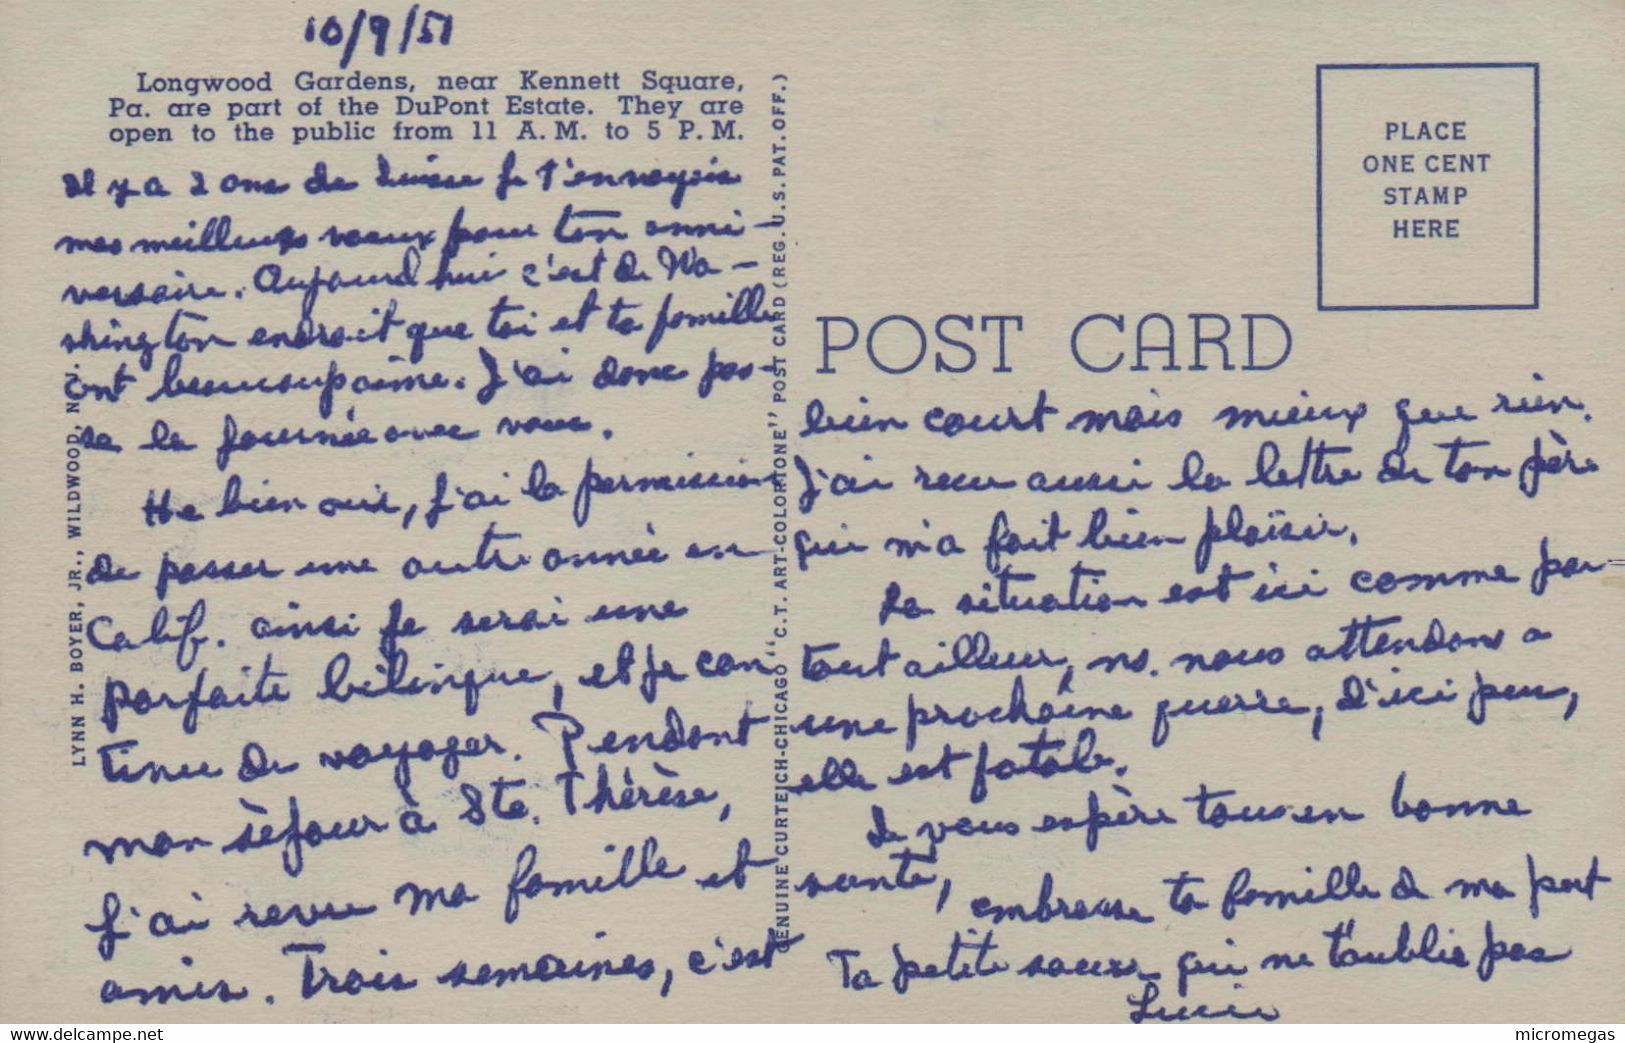 10/9/51
Longwood Gardens, near Kennett Square,
Pa. are part of the DuPont Estate. They are
open to the public from 11 A. M. to 5 P. M.
Il y a 2 ans de Suisse je t'envoyais
mes meilleurs voeux pour ton anni-
versaire. Aujourd'hui c'est de Wa-
shington endroit que toi et ta famille
ont beaucoup aimé. J'ai donc pas-
sé la journée avec vous.
He bien oui, j'ai la permission
de passer une autre année en
Calif. ainsi je serai une
parfaite bilingue, et je con
tinue de voyager. Pendant
mon sèjour à Ste. Thérèse,
j'ai revu ma famille et
amis. Trois semaines, c'est
LYNN H. BOYER, JR., WILDWOOD, N. J.
GENUINE CURTEICH-CHICAGO "C. T. ART-COLORTONE" POST CARD (REG. U.S. PAT. OFF.)
PLACE
ONE CENT
STAMP
HERE
POST CARD
bien court mais mieux que rien.
J'ai recu aussi la lettre de ton père
qui m'a fait bien plaisir.
La situation est ici comme par-
tout ailleurs, ns. nous attendons a
une prochaine guerre, d'ici peu,
elle est fatale.
Je vous espère tous en bonne
santé, embrasse ta famille de ma part
Ta petite soeur qui ne t'oublie pas
Lucie
www.delcampe.net
micromegas